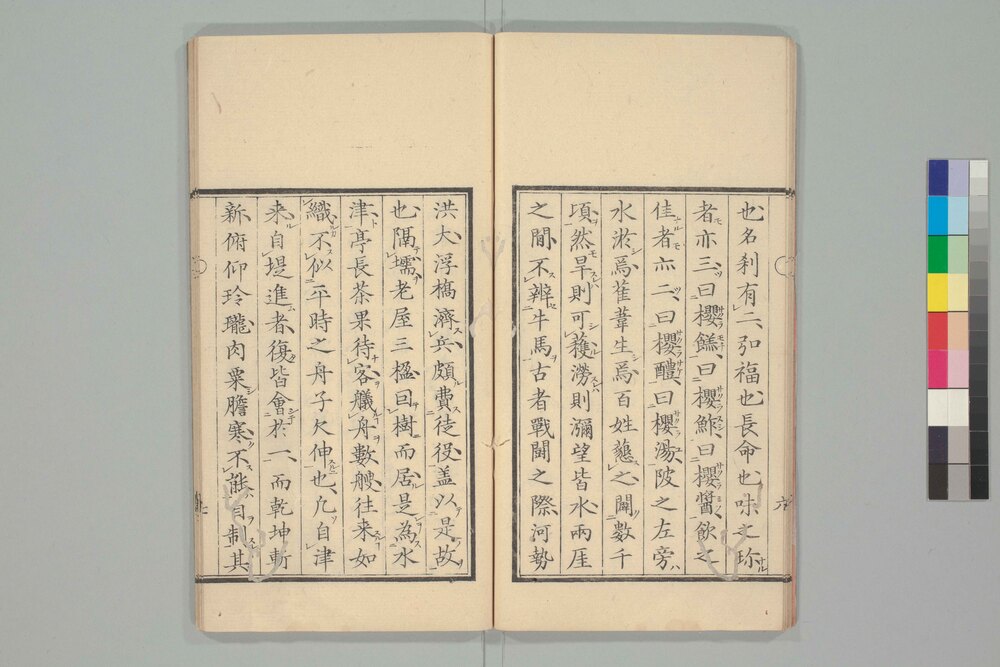 也名刹有二弘福也長命也味之珎
者亦三曰櫻餻曰櫻鮓曰櫻醬飲之
佳者亦二曰櫻醴曰櫻湯陂之左旁
水淤焉萑葦生焉百姓懇之闢數千
頃然旱則可穫澇則瀰望皆水兩厓
之間不辨牛馬古者戰鬪之際河勢
洪大浮橋濟兵頗費徒役盖以是故
也隔壖老屋三楹囙樹而居是為水
津亭長茶果待客艤舟數艘往来如
織不似平時之舟子欠伸也凢自津
来自堤進者復皆會於一而乾坤斬
新俯仰玲瓏肉粟膽寒不能自制其
六
七